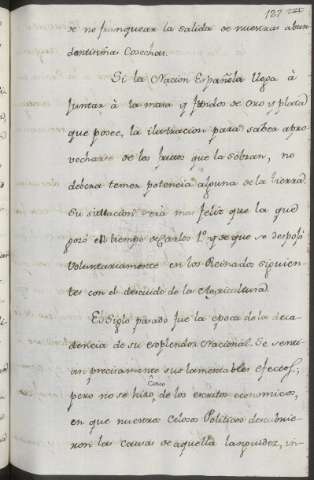 de no franquear la salida de nuestras abun
dantisimas Cosechas.
Si la Nacion Española llega à
juntar à la masa y fondos de oro y plata
que posee, la ilustracion para saber apro
vecharse de los frutos que la sobran, no
debera temer potencia alguna de la tierra.
Su situacion serà mas feliz que la que
gozó en tiempo de Carlos 1.º y de que se despojó
voluntariamente en los Reinados siguien
tes con el descuido de la Agricultura.
El Siglo pasado fue la epoca de la deca
dencia de su esplendor Nacional. Se sentí
an precisamente sus lamentables efectos;
pero no se hizo Caso de los escritos economicos,
en que nuestros Celosos Politicos descubrie
ron las causas de aquella languidez, in-